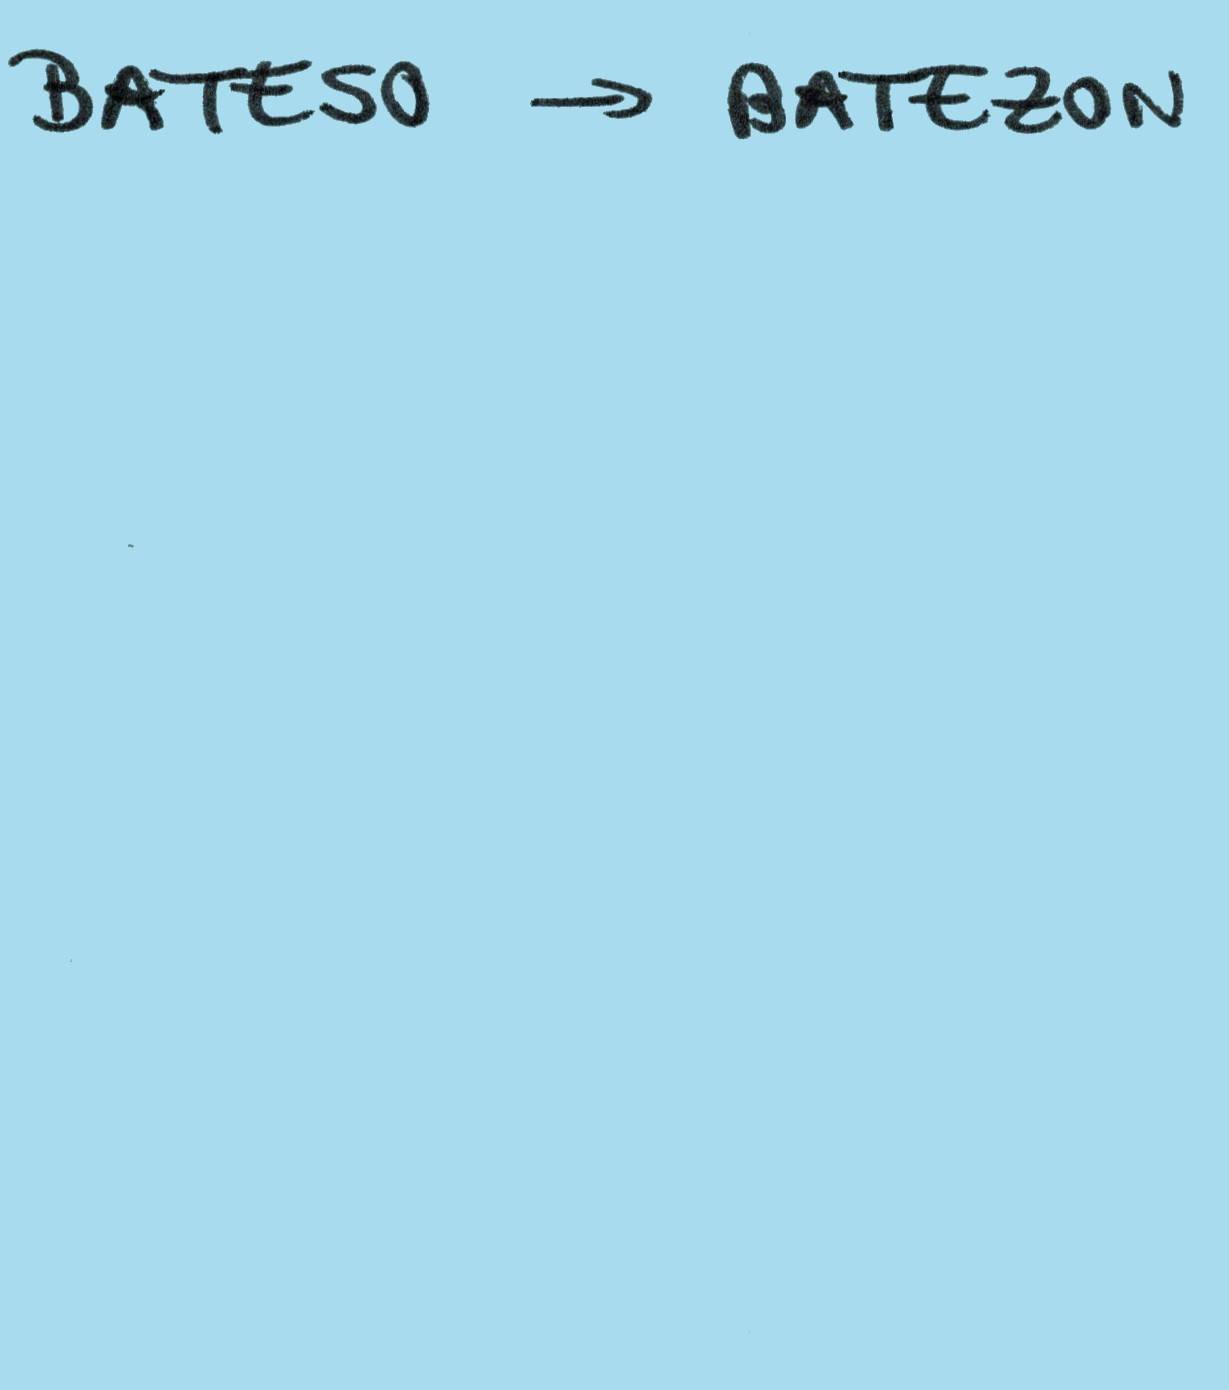 BATESO → BATEZON